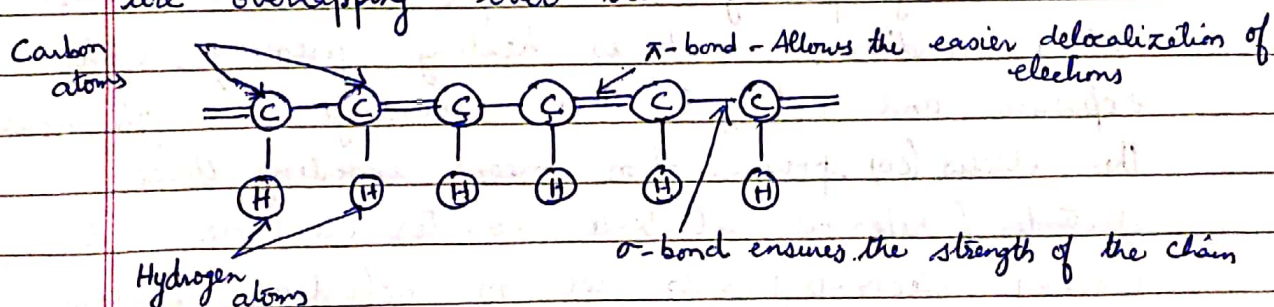 are overlapping
Carbon
atoms
π-bond - Allows the easier delocalization of
electrons
C C C C C C
H H H H H H
σ-bond ensures the strength of the chain
Hydrogen
atoms